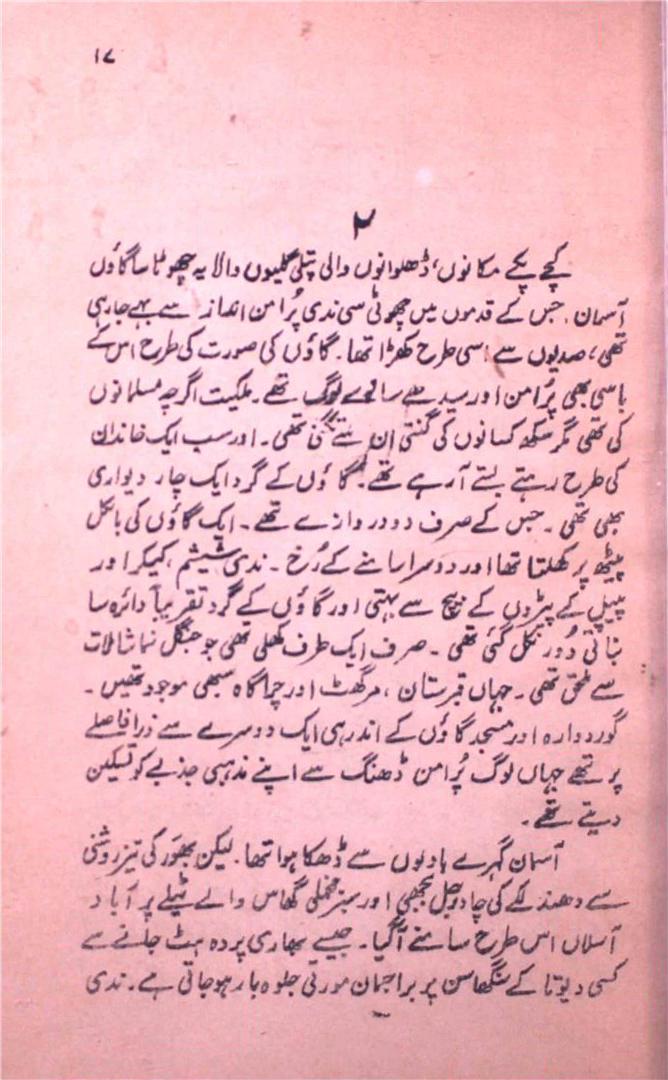 ۱۷
۲
کچے پکے مکانوں، ڈھلوانوں والی پتلی گلیوں والا یہ چھوٹا سا گاؤں
آسمان، جس کے قدموں میں چھوٹی سی ندی پُرامن انداز سے بہے جارہی
تھی، صدیوں سے اسی طرح کھڑا تھا۔ گاؤں کی صورت کی طرح اس کے
باسی بھی پُرامن اور سیدھے سانولے لوگ تھے۔ ملکیت اگرچہ مسلمانوں
کی تھی مگر سکھ کسانوں کی گنتی ان سے تگنی تھی۔ اور سب ایک خاندان
کی طرح رہتے بستے آرہے تھے۔ گاؤں کے گرد ایک چار دیواری
بھی تھی۔ جس کے صرف دو دروازے تھے۔ ایک گاؤں کی بالکل
پیٹھ پر کھلتا تھا اور دوسرا سامنے کے رُخ۔ ندی شیشم، کیکر اور
پیپل کے پیڑوں کے بیچ سے بہتی اور گاؤں کے گرد تقریباً دائرہ سا
بناتی دُور نکل گئی تھی۔ صرف ایک طرف کھلی تھی جو جنگل نما شالات
سے ملحق تھی۔ جہاں قبرستان، مرگھٹ اور چراگاہ سبھی موجود تھیں۔
گوردوارہ اور مسجد گاؤں کے اندر ہی ایک دوسرے سے ذرا فاصلے
پر تھے جہاں لوگ پُرامن ڈھنگ سے اپنے مذہبی جذبے کو تسکین
دیتے تھے۔
آسمان گہرے بادلوں سے ڈھکا ہوا تھا۔ لیکن بھور کی تیز روشنی
سے دھندلکے کی چادر چھٹی اور سبز مخملی گھاس والے ٹیلے پر آباد
آسلاں اس طرح سامنے آگیا۔ جیسے بھاری پردہ ہٹ جانے سے
کسی دیوتا کے سنگھاسن پر براجمان مورتی جلوہ بار ہوجاتی ہے۔ ندی